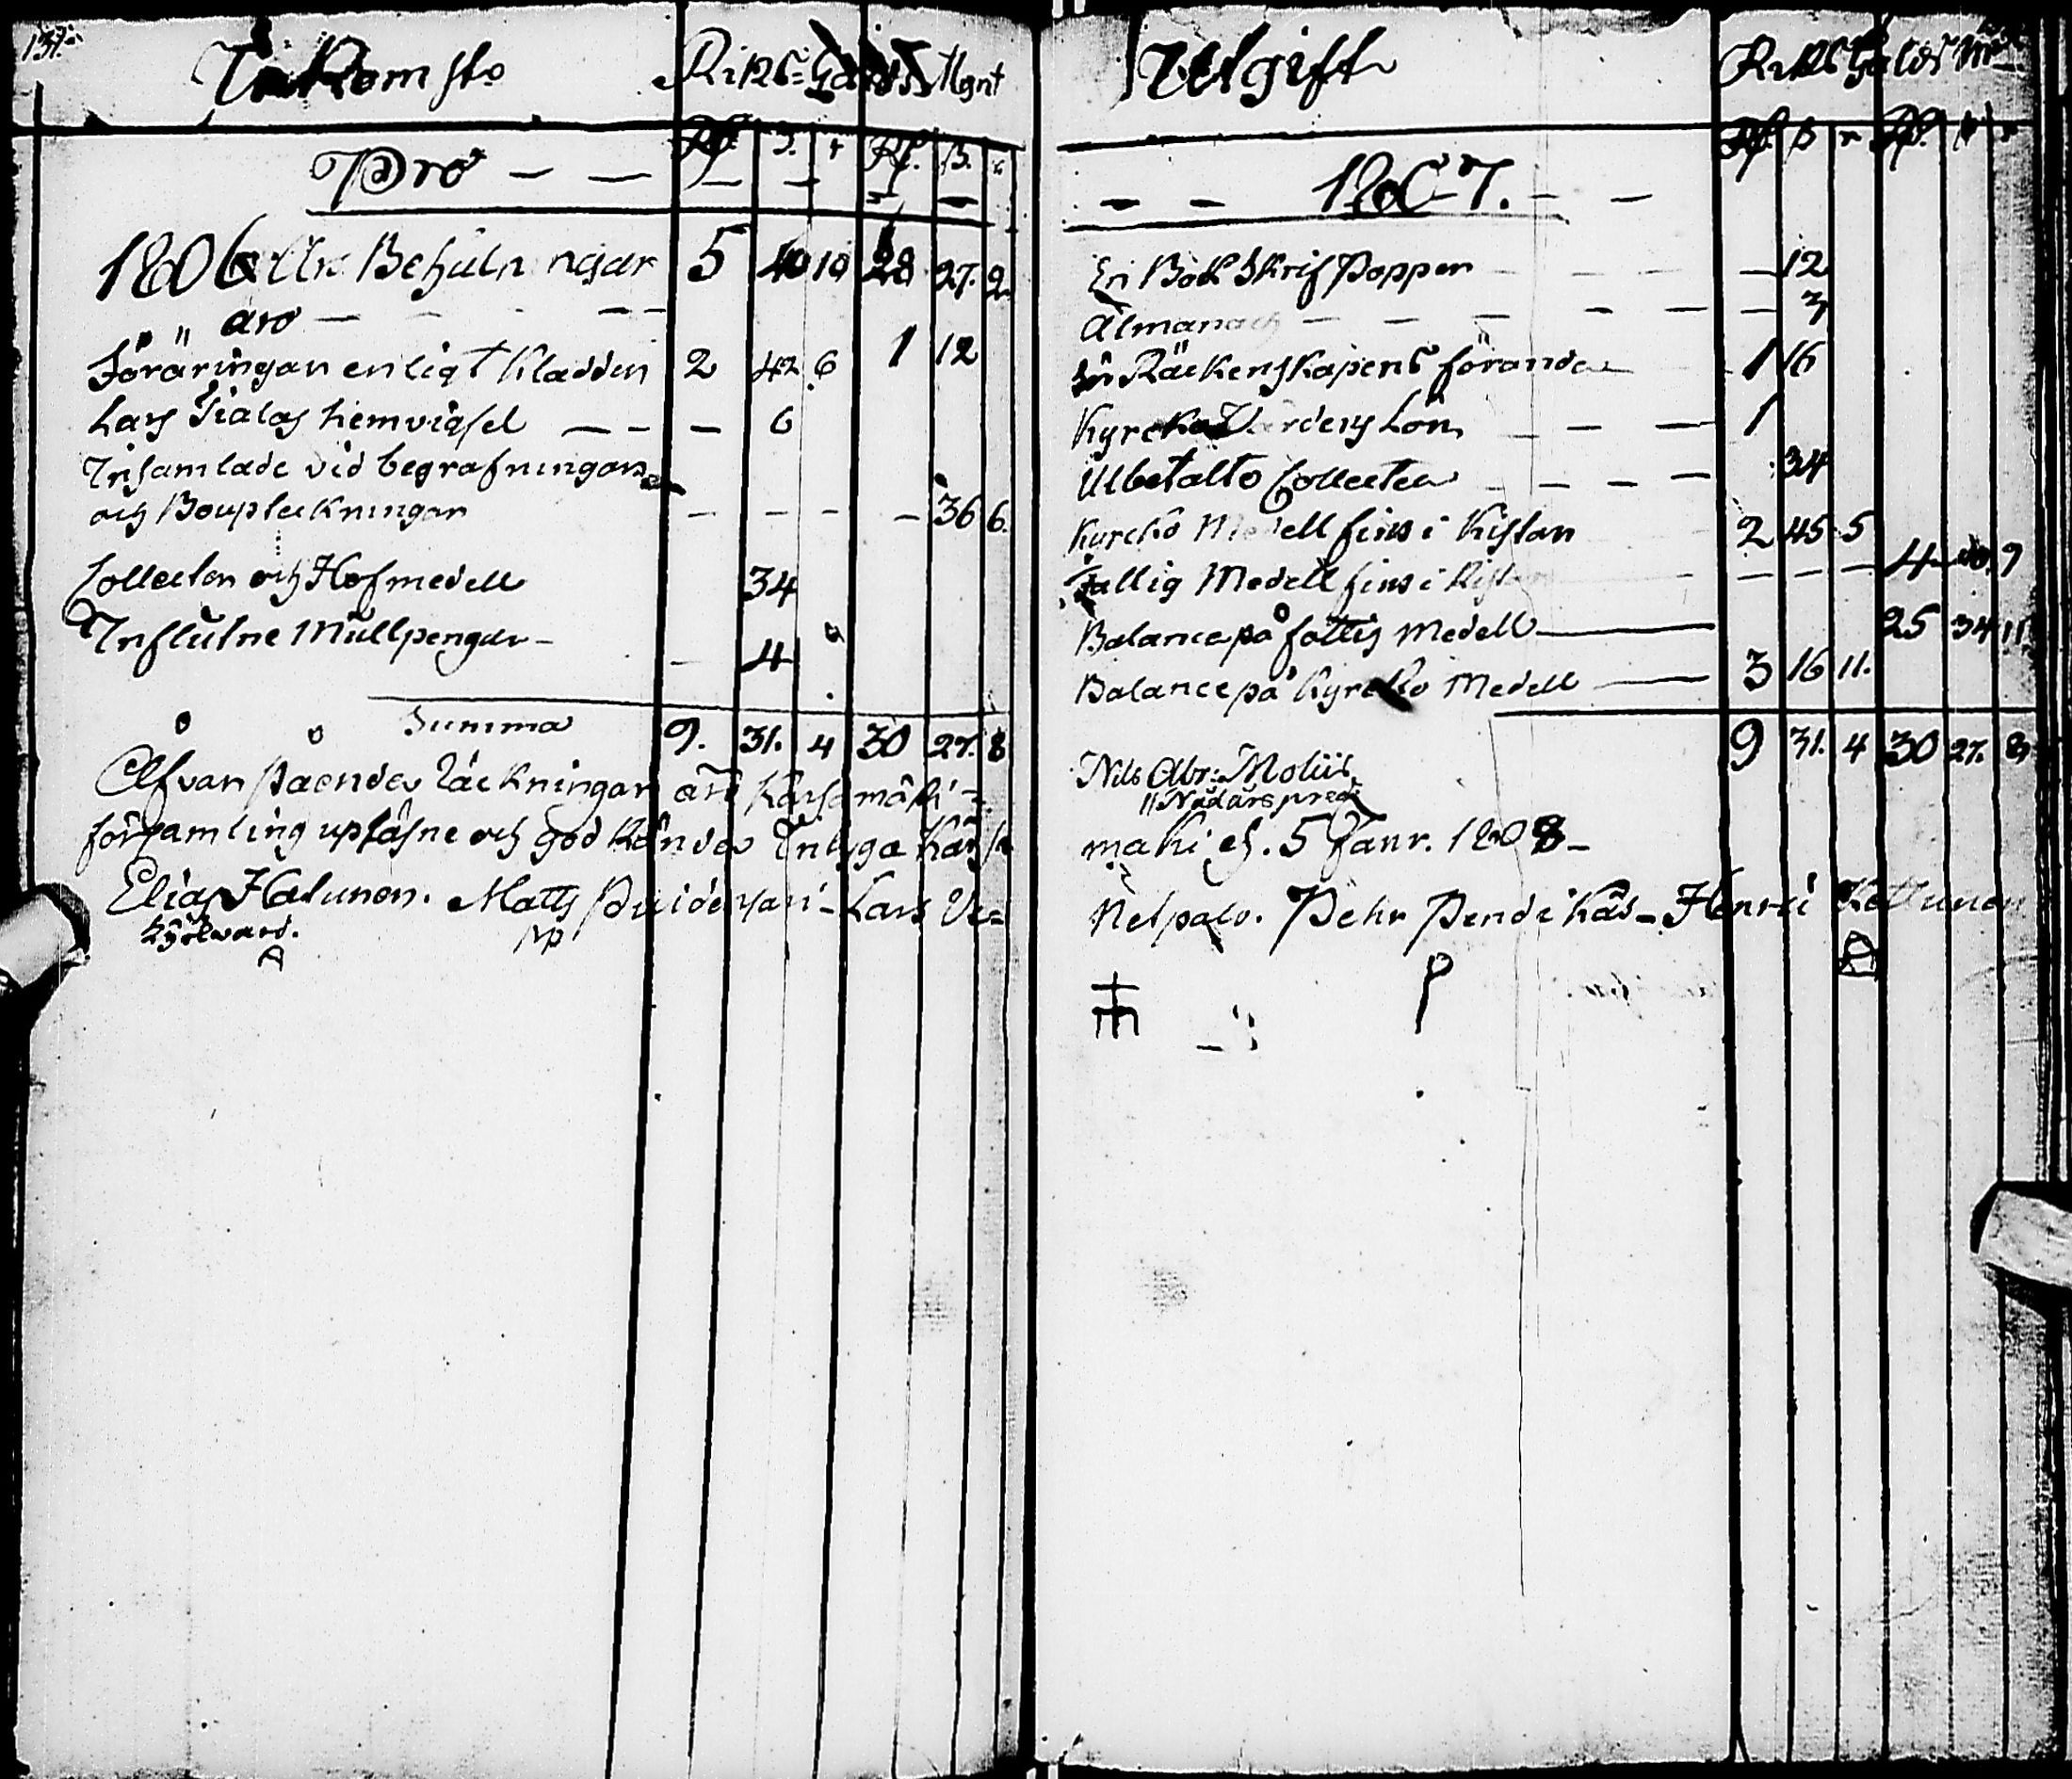 137.
Inkomst
Riks Gälds Mynt
Pro — —
Rd. ß. r Rd. ß. r
1806 års Behåldningar 5 40 10 28 27. 2.
äro — — — —
Föräringar enligt Kladden 2 42 6 1 12
Lars Tialas hemvigsel — — — 6
Insamlade vid begrafningar
och Boupteckningar — — — — 36 6.
Collecter och Hofmedell 34
Influtne Mullpengar — — 4
Summa 9. 31. 4 30 27. 8
Åfvan stående Räckningar äro Karstmäki
församling uplästne och godkände Intyga Karstu
Elias Hatunen. Matts Puidensari — Lars Ve=
Kyrkvärd.
Utgift
Riks Gälds Mt
Rd. ß r Rd. ß r
— — 1807. — —
En Bok Skrif Papper — — 12
Almanach — — — — — — 3
för Räckenskapens förande — 1 16
Kyrcko Värdens Lön — — — 1
Utbetalte Collecter — — — — 34
Kyrcko Medell fins i Kistan 2 45 5
Fattig Medell fins i Kistan — — — — 4 40. 9
Balance på fattig Medell — 25 34 11
Balance på Kyrcko Medell — 3 16 11.
9 31. 4 30 27. 8
Nils Abr: Moliis
Nådårs pred.
maki d. 5 Janr. 1808 —
Netpalo. Pehr Pendikäs — Henric Kettunen